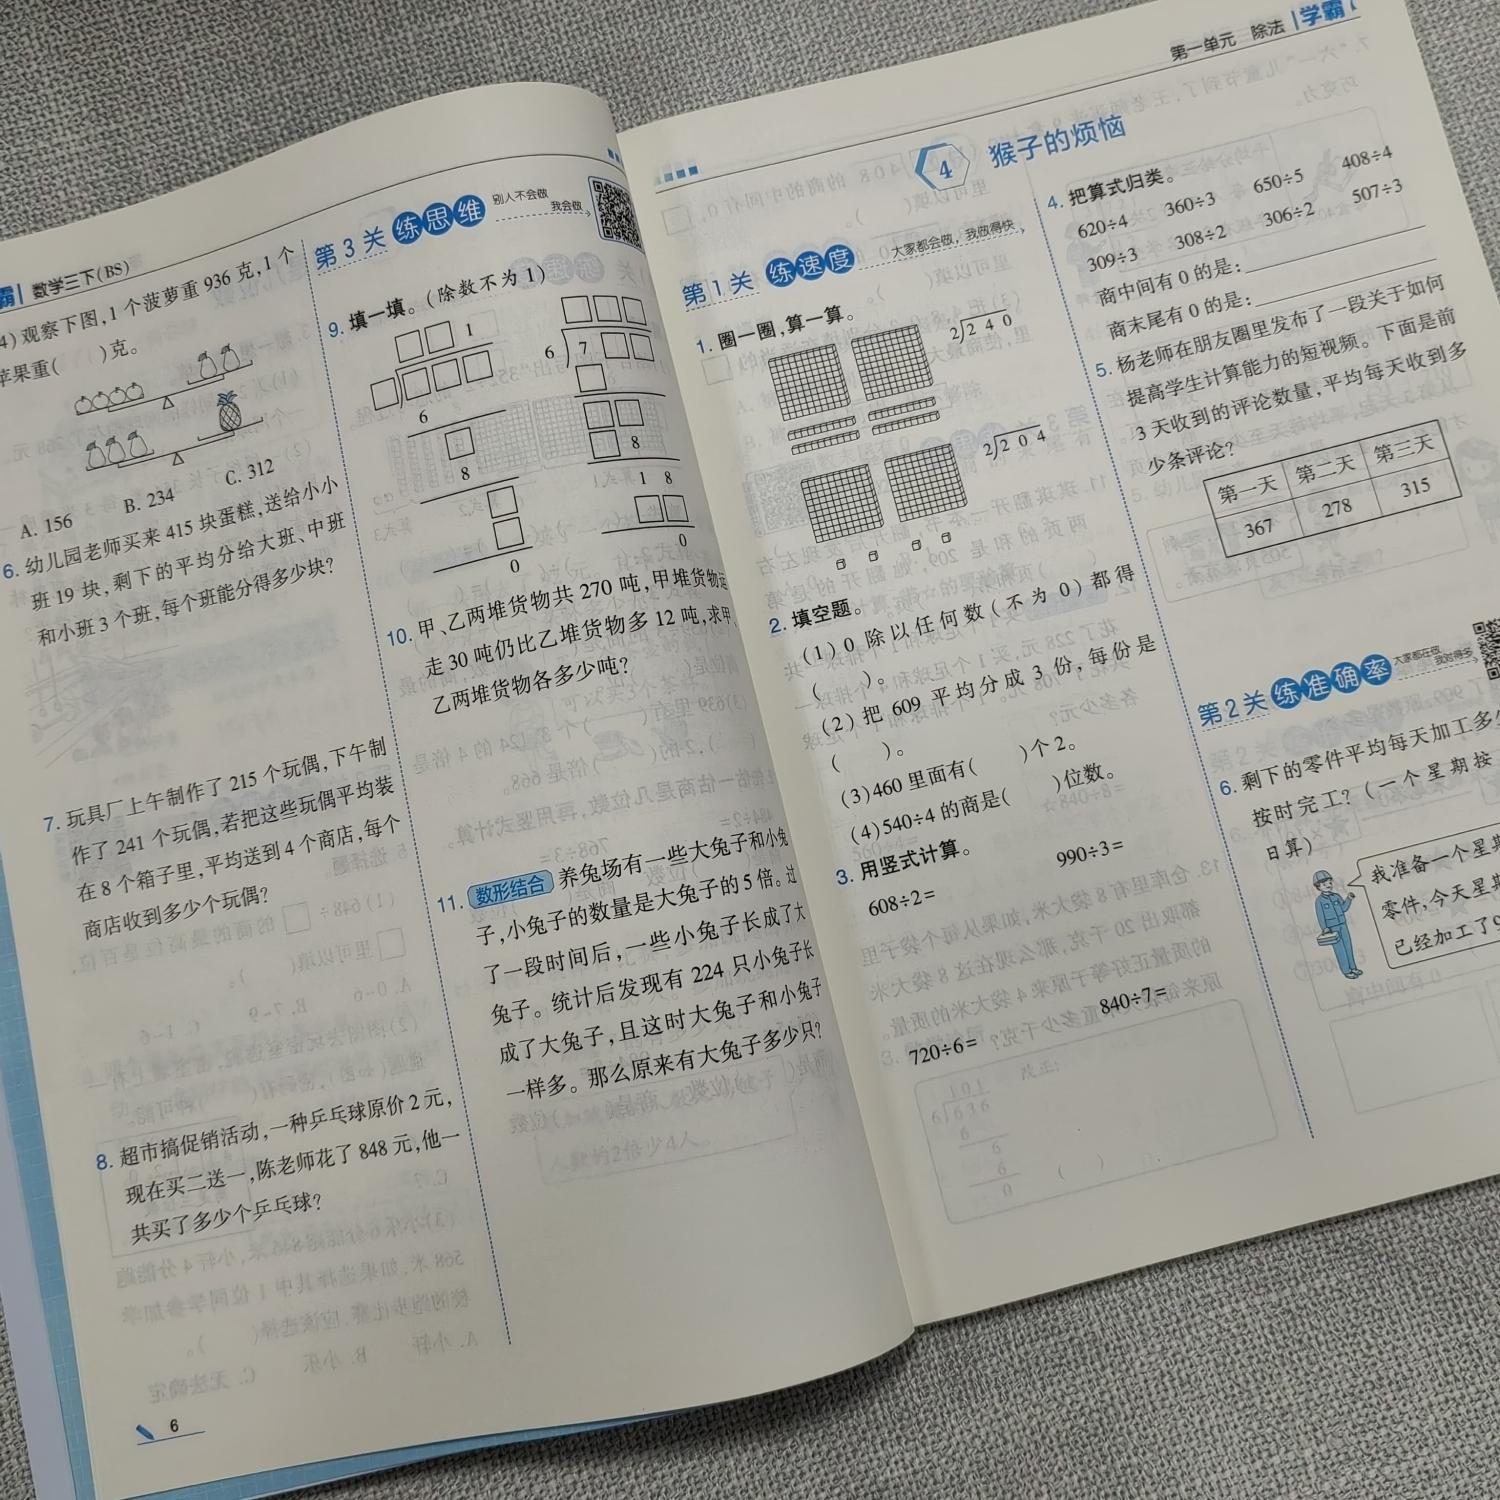 霸 数学三下(BS)
4)观察下图,1个菠萝重936克,1个
苹果重( )克。
A. 156 B. 234 C. 312
6. 幼儿园老师买来415块蛋糕,送给小小
班19块,剩下的平均分给大班、中班
和小班3个班,每个班能分得多少块?
7. 玩具厂上午制作了215个玩偶,下午制
作了241个玩偶,若把这些玩偶平均装
在8个箱子里,平均送到4个商店,每个
商店收到多少个玩偶?
8. 超市搞促销活动,一种乒乓球原价2元,
现在买二送一,陈老师花了848元,他一
共买了多少个乒乓球?
6
第3关 练思维 别人不会做
我会做
9. 填一填。(除数不为1)
□□1
□ □□□
6
□
8
□
□
0
□□□
6 7□□
□
□□
□8
18
□□
0
10. 甲、乙两堆货物共270吨,甲堆货物运
走30吨仍比乙堆货物多12吨,求甲、
乙两堆货物各多少吨?
11. 数形结合 养兔场有一些大兔子和小兔
子,小兔子的数量是大兔子的5倍。过
了一段时间后,一些小兔子长成了大
兔子。统计后发现有224只小兔子长
成了大兔子,且这时大兔子和小兔子
一样多。那么原来有大兔子多少只?
第一单元 除法 学霸
4 猴子的烦恼
第1关 练速度 大家都会做,我做得快
1. 圈一圈,算一算。
2 240
2 204
2. 填空题。
(1)0除以任何数(不为0)都得
( )。
(2)把609平均分成3份,每份是
( )。
(3)460里面有( )个2。
(4)540÷4的商是( )位数。
3. 用竖式计算。
608÷2= 990÷3=
720÷6= 840÷7=
4. 把算式归类。
620÷4 360÷3 650÷5 408÷4
309÷3 308÷2 306÷2 507÷3
商中间有0的是:
商末尾有0的是:
5. 杨老师在朋友圈里发布了一段关于如何
提高学生计算能力的短视频。下面是前
3天收到的评论数量,平均每天收到多
少条评论?
第一天 第二天 第三天
367 278 315
第2关 练准确率 大家都在做
我对得多
6. 剩下的零件平均每天加工多少
按时完工?(一个星期按
日算)
我准备一个星期
零件,今天星期
已经加工了9